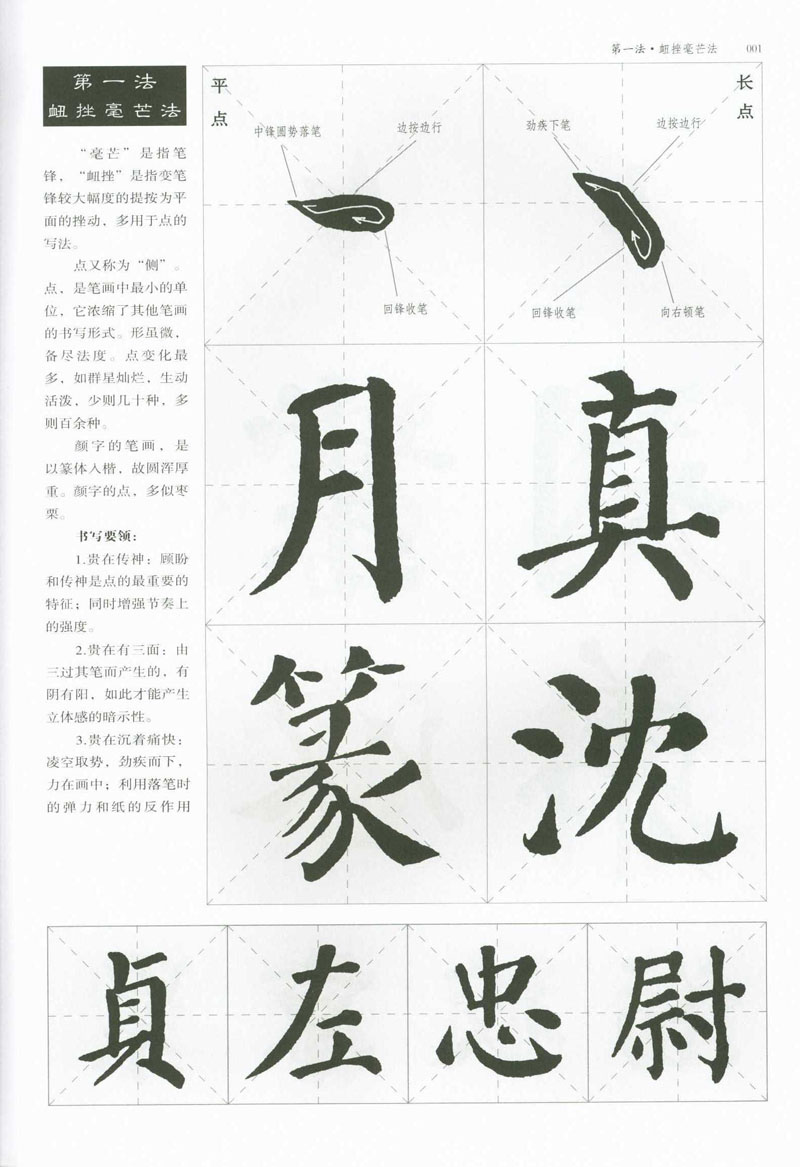 第一法·衄挫毫芒法 001
第一法
衄挫毫芒法
“毫芒”是指笔
锋，“衄挫”是指变笔
锋较大幅度的提按为平
面的挫动，多用于点的
写法。
点又称为“侧”。
点，是笔画中最小的单
位，它浓缩了其他笔画
的书写形式。形虽微，
备尽法度。点变化最
多，如群星灿烂，生动
活泼，少则几十种，多
则百余种。
颜字的笔画，是
以篆体入楷，故圆浑厚
重。颜字的点，多似枣
栗。
书写要领：
1.贵在传神：顾盼
和传神是点的最重要的
特征；同时增强节奏上
的强度。
2.贵在有三面：由
三过其笔而产生的，有
阴有阳，如此才能产生
立体感的暗示性。
3.贵在沉着痛快：
凌空取势，劲疾而下，
力在画中；利用落笔时
的弹力和纸的反作用
平点
中锋圆势落笔
边按边行
回锋收笔
长点
劲疾下笔
边按边行
回锋收笔
向右顿笔
月 真
篆 沈
貞 左 忠 尉